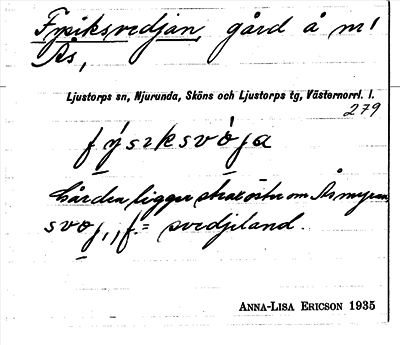 Fysiksvedjan, gård å nr 1
Ås,
Ljustorps sn, Njurunda, Sköns och Ljustorps tg, Västernorrl. l.
279
fýsıksvò̀ja
Gården ligger strax öster om Åsmyren
svoj,, f. = svedjeland.
ANNA-LISA ERICSON 1935